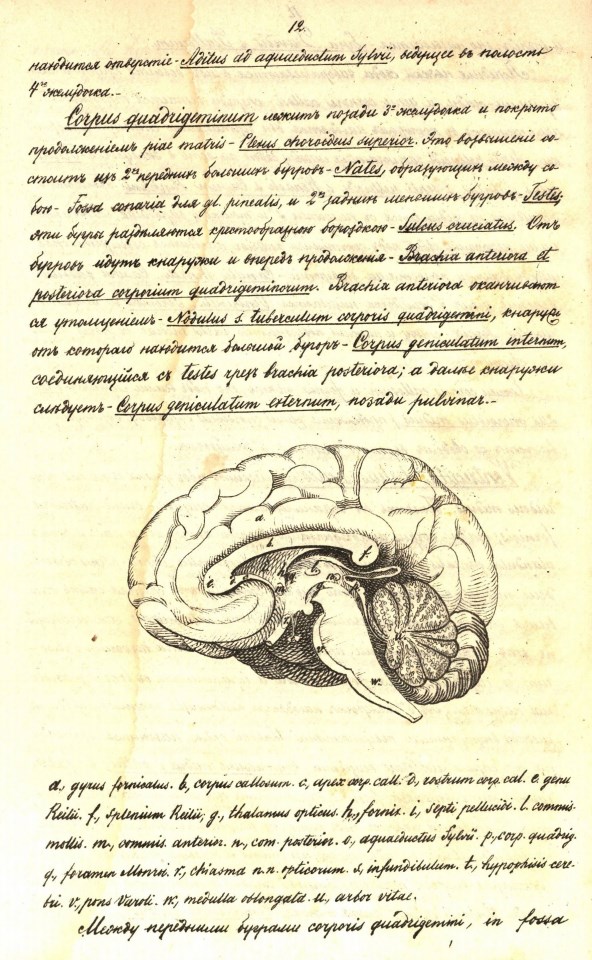 12.
находится отверстіе - Aditus ad aquaeductum Sylvii, ведущее въ полость
4го желудочка. -
Corpus quadrigeminum лежитъ позади 3го желудочка и покрыто
продолженіемъ piae matris - Plexus choroideus superior. Это возвышеніе со-
стоитъ изъ 2хъ переднихъ большихъ бугровъ - Nates, образующихъ между со-
бою - Fossa conaria для gl. pinealis, и 2хъ заднихъ меньшихъ бугровъ - Testis;
эти бугры раздѣляются крестообразною бороздкою - Sulcus cruciatus. Отъ
бугровъ идутъ кнаружи и впередъ продолженія - Brachia anteriora et
posteriora corporium quadrigeminorum. Brachia anteriora оканчивают-
ся утолщеніемъ - Nodulus s. tuberculum corporis quadrigemini, кнаружи
отъ котораго находится большой бугоръ - Corpus geniculatum internum,
соединяющійся съ testes чрезъ brachia posteriora; а далѣе кнаружи
слѣдуетъ - Corpus geniculatum externum, позади pulvinar. -
a.
b.
f.
v.
w.
a., gyrus fornicatus. b, corpus callosum. c, apex corp. call. d., rostrum corp. cal. e. genu
Reilii. f., splenium Reilii; g., thalamus opticus. h., fornix. i, septi pellucidi. l. commis.
mollis. m., commis. anterior. n., com. posterior. o., aquaeductus Sylvii. p., corp. quadrig.
q., foramen Monroi. r., chiasma n.n. opticorum. s, infundibulum. t., hypophisis cere-
bri. v., pons Varoli. w., medulla oblongata. u., arbor vitae.
Между передними буграми corporis quadrigemini, in fossa